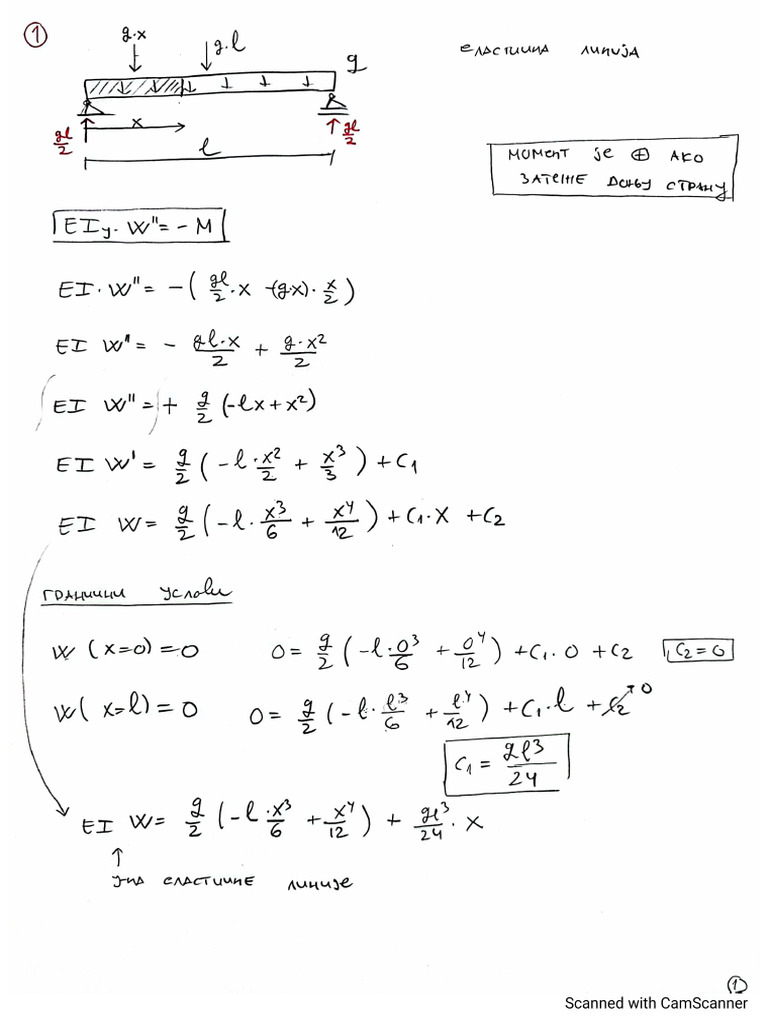 1
g·x
g·l
g
еластична линија
x
gl/2
gl/2
l
момент је ⊕ ако
затеже доњу страну
EI_y · W'' = - M
EI · W'' = - ( gl/2 · x - (g·x) · x/2 )
EI W'' = - gl·x/2 + g·x²/2
EI W'' = + g/2 (-lx + x²)
EI W' = g/2 ( -l · x²/2 + x³/3 ) + C₁
EI W = g/2 ( -l · x³/6 + x⁴/12 ) + C₁·x + C₂
гранични услови
W (x=0) = 0 0 = g/2 ( -l · 0³/6 + 0⁴/12 ) + C₁ · 0 + C₂ C₂ = 0
W ( x=l ) = 0 0 = g/2 ( -l · l³/6 + l⁴/12 ) + C₁ · l + C₂ → 0
C₁ = gl³/24
EI W = g/2 ( -l · x³/6 + x⁴/12 ) + gl³/24 · x
↑
ј-на еластичне линије
1
Scanned with CamScanner